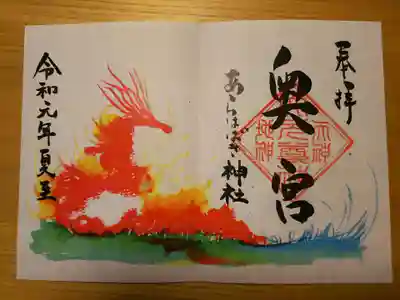 奉拝
奥宮
あらはばき神社
令和元年夏至